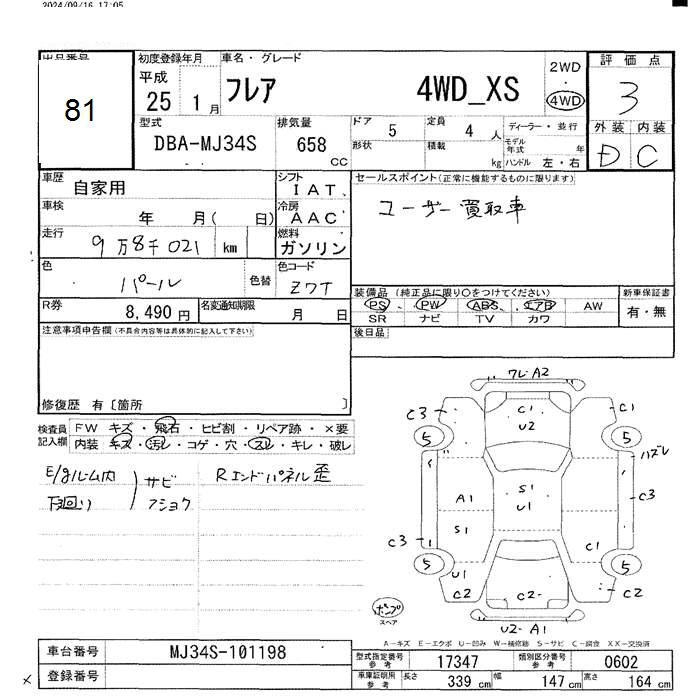 2024/09/16 17:05
出品番号
81
初度登録年月
平成
25 1月
車名・グレード
フレア 4WD_XS
2WD
・
4WD
評価点
3
外装 内装
D C
型式
DBA-MJ34S
排気量
658
CC
ドア
5
定員
4 人
形状
積載
kg
ディーラー・並行
モデル年式 年
ハンドル 左・右
車歴
自家用
シフト
IAT
セールスポイント(正常に機能するものに限ります)
ユーザー買取車
車検
年 月( 日)
冷房
AAC
走行
9万8千021 km
燃料
ガソリン
色
パール
色替
色コード
Z7T
R券
8,490 円
名変通知期限
月 日
装備品 (純正品に限り〇をつけてください)
PS PW ABS エアB AW
SR ナビ TV カワ
新車保証書
有・無
注意事項申告欄(不具合内容等は具体的に記入して下さい)
後日品
修復歴 有〔箇所 〕
検査員記入欄
FW キズ・飛石・ヒビ割・リペア跡・×要
内装 キズ・汚レ・コゲ・穴・スレ・キレ・破レ
E/gルーム内
下回り
サビ
フショク
Rエンドパネル歪
ワレ A2
C3 C1 C1
U2
5 5
ハズレ
A1 S1 C3
U1
S1
C3 C1
5 5
U1
C2 C2 C2
U2 A1
ポンプ
スペア
A-キズ E-エクボ U-凹み W-補修跡 S-サビ C-腐食 XX-交換済
車台番号
MJ34S-101198
登録番号
型式指定番号
参考
17347
類別区分番号
参考
0602
車庫証明用
参考
長さ 339 cm
幅 147 cm
高さ 164 cm